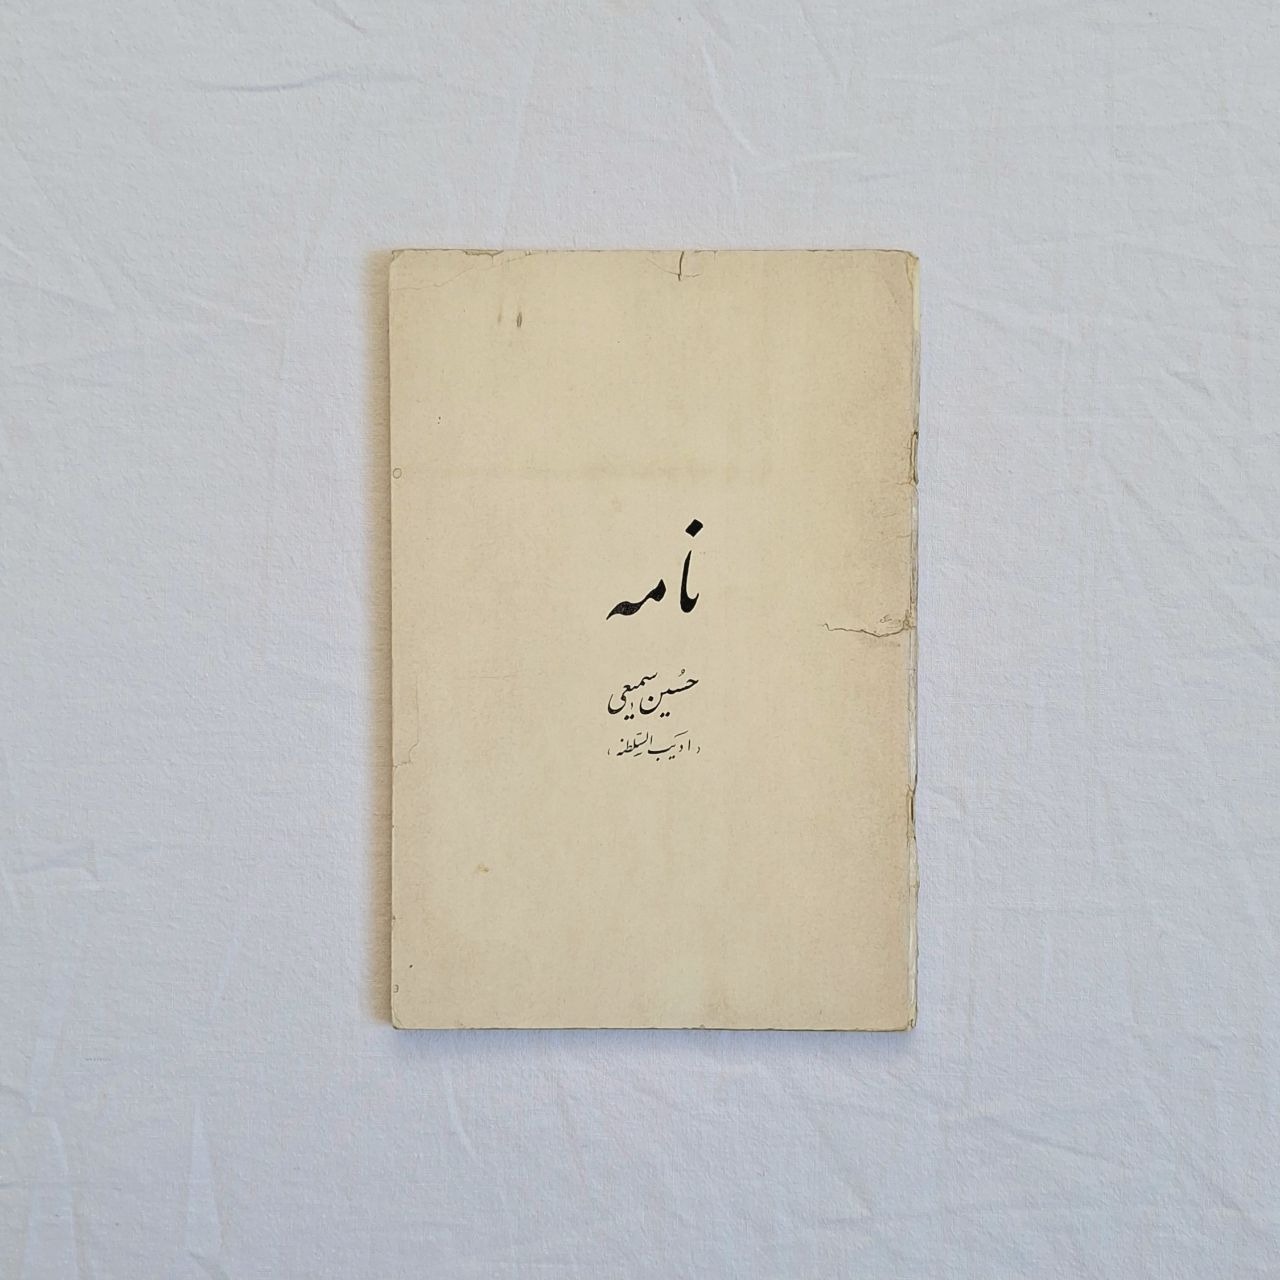 نامه
حُسین سمیعی
(ادیَب السّلِطنه)